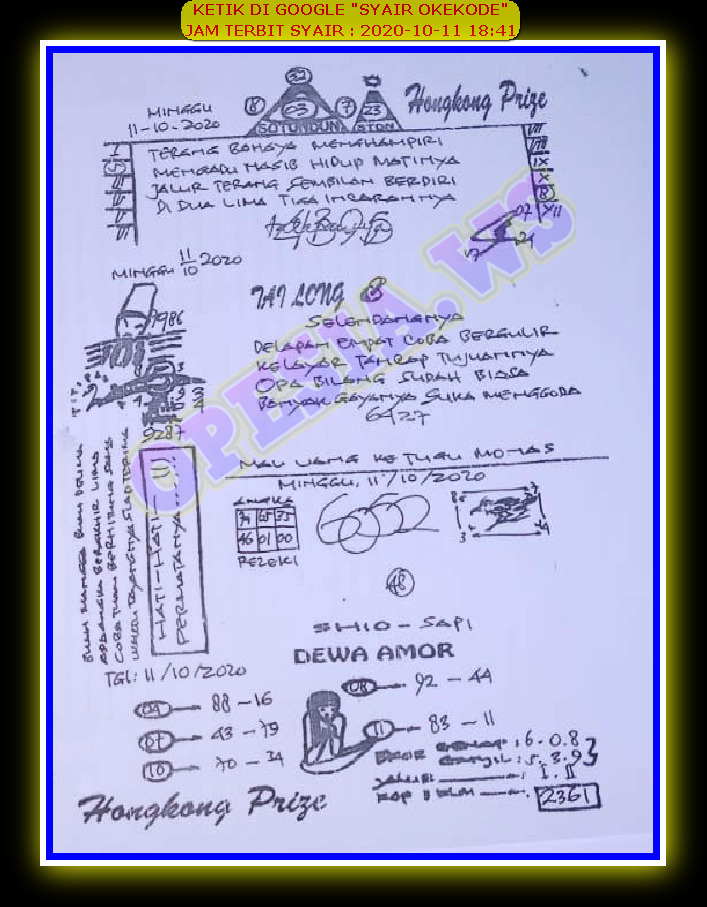 KETIK DI GOOGLE "SYAIR OKEKODE"
JAM TERBIT SYAIR : 2020-10-11 18:41
MINGGU
11-10-2020
8 03 7 23
SOTUNDUN
Hongkong Prize
TERANG BAHAYA MENGHAMPIRI
MENGADU NASIB HIDUP MATINYA
JALUR TERANG SEMBILAN BERDIRI
DI DUA LIMA TIGA INCARANNYA
VII
VIII
IX
X
XII
07
17 21
MINGGU 11/10 2020
TAI LONG
SELENDANGNYA
DELAPAN EMPAT COBA BERGULIR
KELAYAR TANCAP TUJUANNYA
OPA BILANG SUDAH BIASA
BANYAK GAYANYA SUKA MENGGODA
6427
1986
9287
OPESIA.WS
HATI-HATI
PERMATANYA
MAU UANG KE TUGU MONAS
MINGGU, 11/10/2020
ANGKA
74 65 35
46 01 00
REZEKI
48
SHIO - SAPI
DEWA AMOR
TGL: 11/10/2020
08 92 - 44
04 88 - 16
11 83 - 11
07 43 - 79
10 70 - 34
EKOR GENAP : 6.0.8
GANJIL : 5.3.9
2361
Hongkong Prize